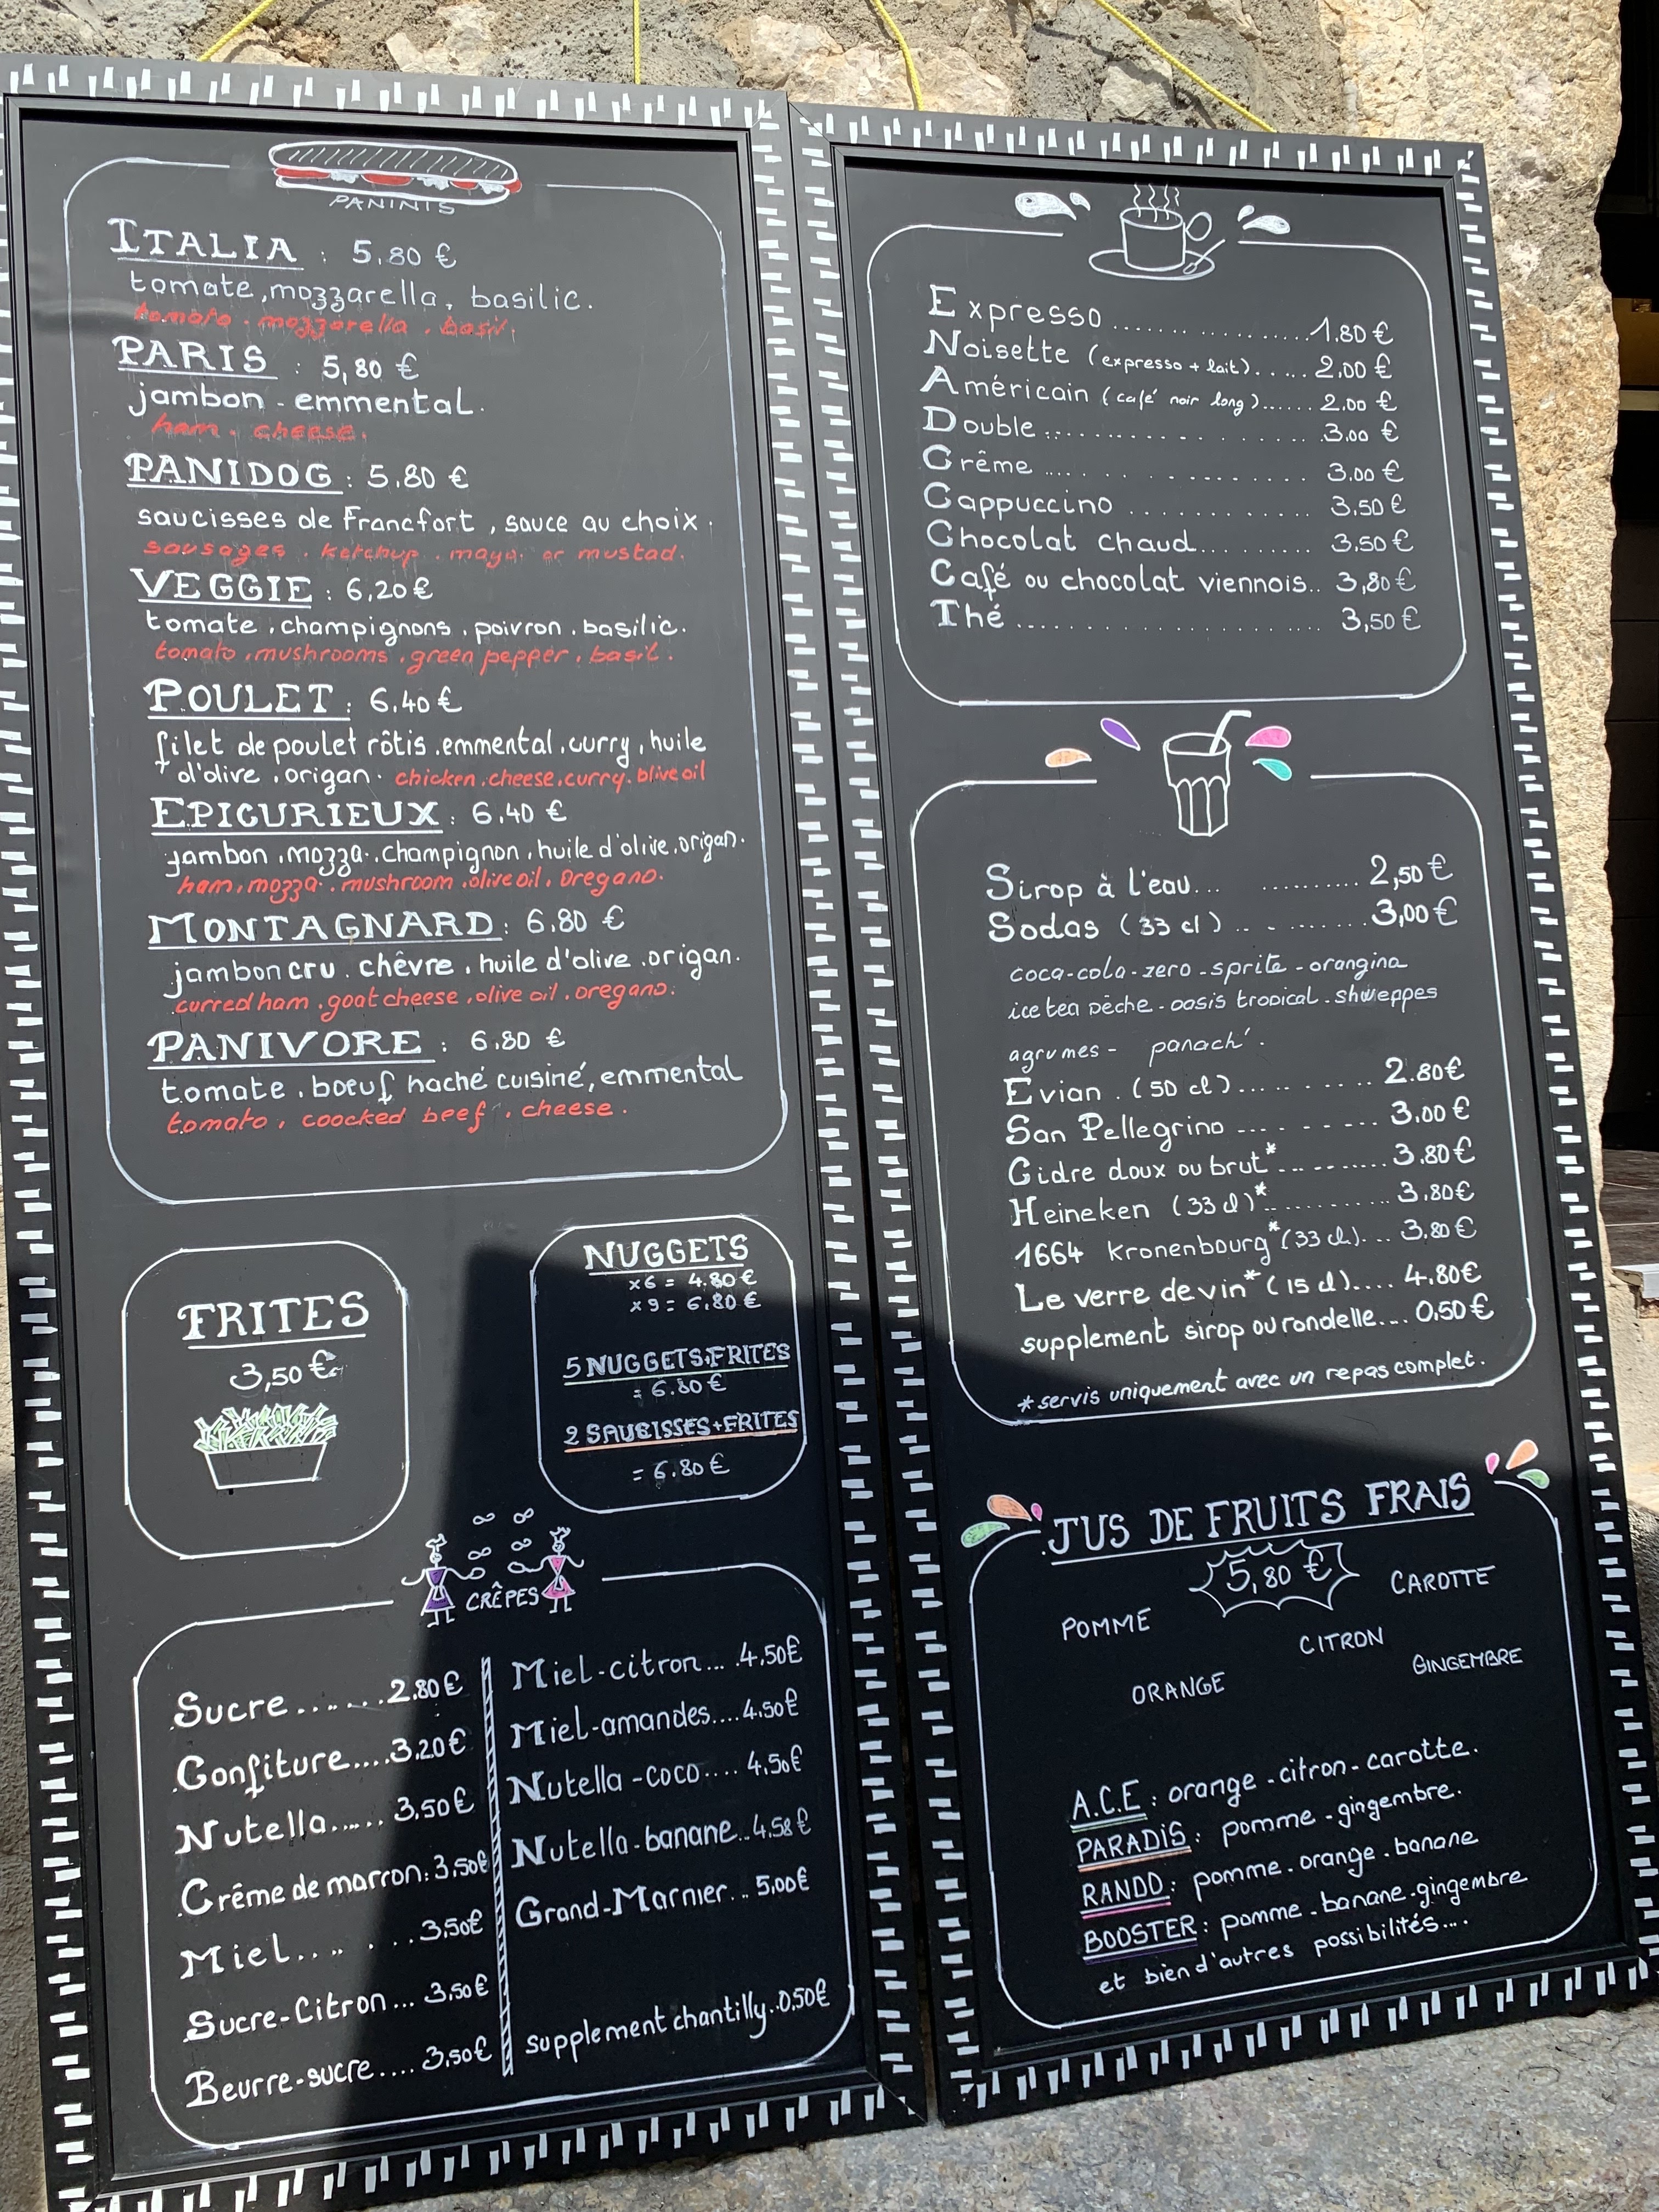 PANINIS
ITALIA : 5.80 €
tomate, mozzarella, basilic.
tomato. mozzarella. basil.
PARIS : 5,80 €
jambon - emmental.
ham. cheese.
PANIDOG : 5.80 €
saucisses de Francfort, sauce au choix.
sausages. ketchup. mayo. or mustad.
VEGGIE : 6,20 €
tomate. champignons. poivron. basilic.
tomato. mushrooms. green pepper. basil.
POULET : 6.40 €
filet de poulet rôtis. emmental. curry, huile
d'olive. origan. chicken. cheese. curry. olive oil
EPICURIEUX : 6.40 €
jambon. mozza. champignon, huile d'olive. origan.
ham. mozza. mushroom. olive oil. oregano.
MONTAGNARD : 6.80 €
jambon cru. chêvre. huile d'olive. origan.
curred ham. goat cheese. olive oil. oregano.
PANIVORE : 6.80 €
tomate. boeuf haché cuisiné, emmental
tomato. coocked beef. cheese.
FRITES
3,50 €
NUGGETS
x6 = 4.80 €
x9 = 6.80 €
5 NUGGETS+FRITES
= 6.80 €
2 SAUCISSES+FRITES
= 6.80 €
CRÊPES
Sucre....... 2.80 €
Confiture.... 3.20 €
Nutella...... 3,50 €
Crême de marron: 3,50 €
Miel........ 3,50 €
Sucre-Citron... 3.50 €
Beurre-sucre.... 3,50 €
Miel-citron.... 4,50 €
Miel-amandes.... 4.50 €
Nutella-coco.... 4,50 €
Nutella-banane.. 4.50 €
Grand-Marnier... 5,00 €
supplement chantilly.. 0.50 €
Expresso ................ 1.80 €
Noisette (expresso + lait)...... 2,00 €
Américain (café noir long)...... 2.00 €
Double .................. 3.00 €
Crême .................. 3.00 €
Cappuccino ............ 3.50 €
Chocolat chaud......... 3.50 €
Café ou chocolat viennois.. 3,80 €
Thé ...................... 3,50 €
Sirop à l'eau... .......... 2,50 €
Sodas (33 cl) .. ......... 3,00 €
coca-cola-zero - sprite - orangina
ice tea pêche - oasis tropical - shweppes
agrumes - panach'.
Evian. (50 cl)............ 2.80 €
San Pellegrino ---------- 3.00 €
Cidre doux ou brut*.......... 3.80 €
Heineken (33 cl)*............ 3.80 €
1664 Kronenbourg* (33 cl).... 3.80 €
Le verre de vin* (15 cl).... 4.80 €
supplement sirop ou rondelle.... 0.50 €
* servis uniquement avec un repas complet.
JUS DE FRUITS FRAIS
5,80 €
CAROTTE
POMME
CITRON
GINGEMBRE
ORANGE
A.C.E : orange - citron - carotte.
PARADIS : pomme - gingembre.
RANDO : pomme - orange - banane
BOOSTER : pomme - banane - gingembre
et bien d'autres possibilités....